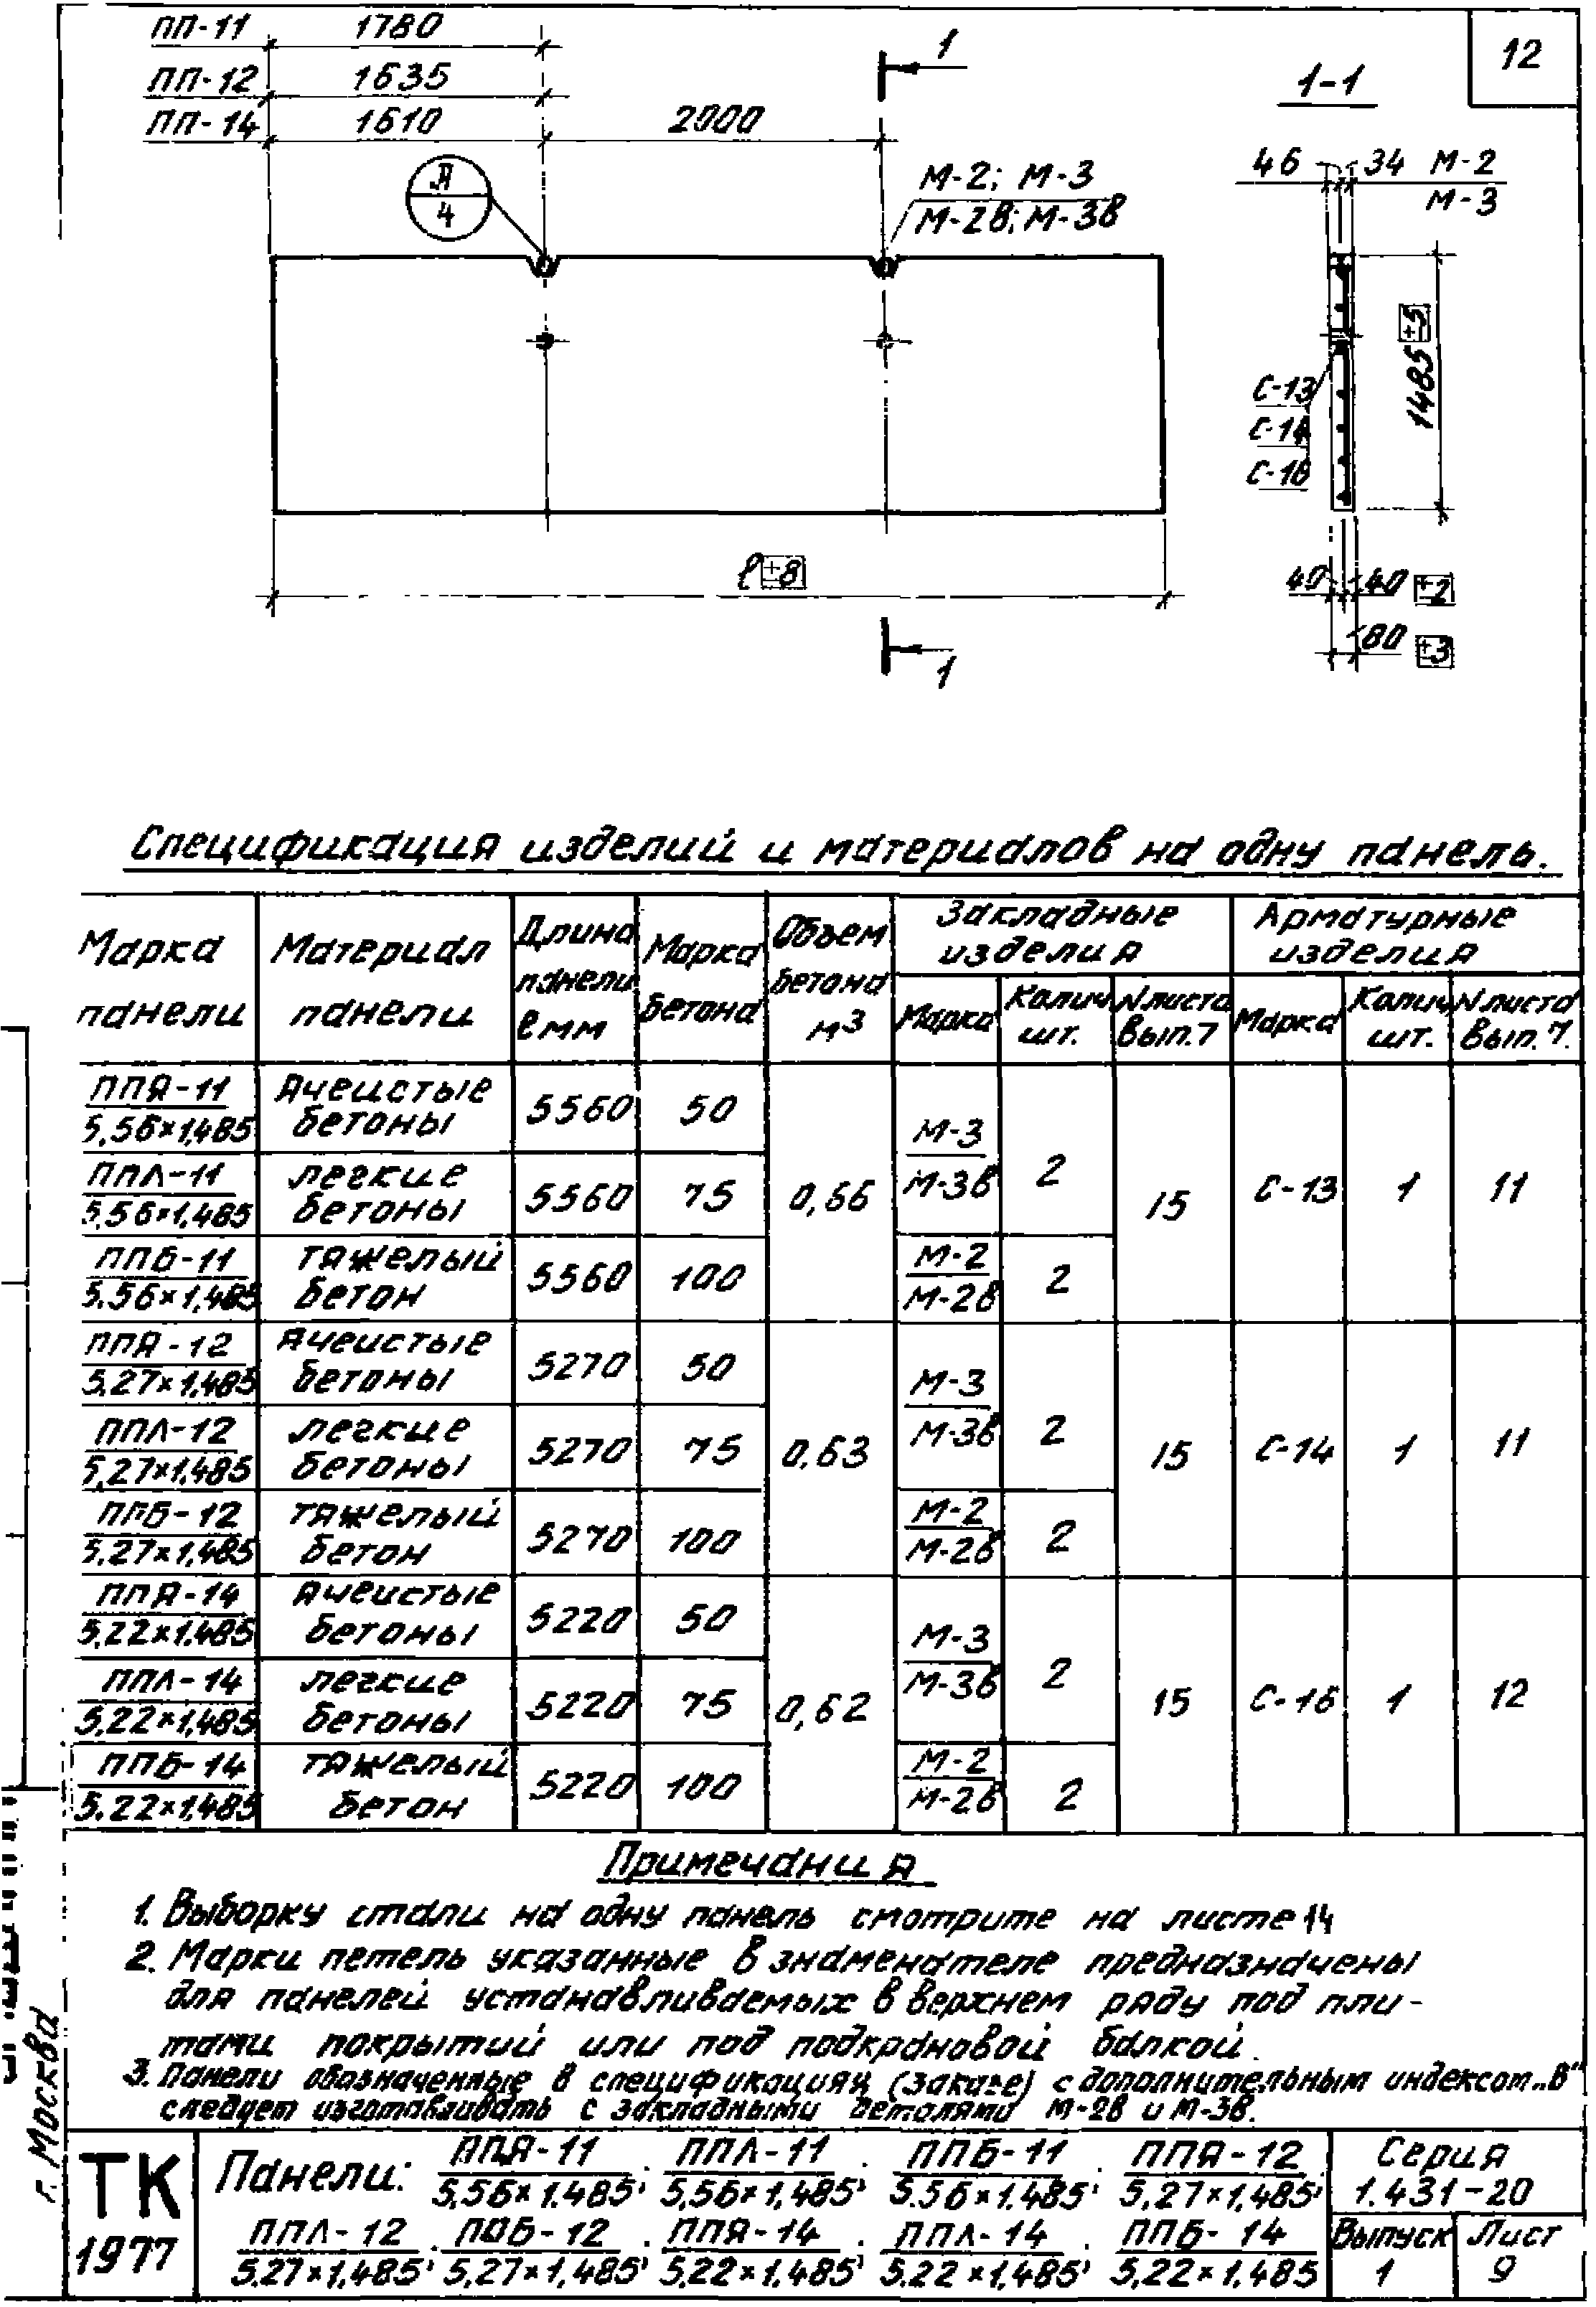 ПП-11 1780
ПП-12 1635
ПП-14 1610 2000
1
1-1
12
А
4
М-2; М-3
М-2В; М-3В
46 34 М-2
М-3
1485 ±5
С-13
С-14
С-16
ℓ ±8
40 40 ±2
80 ±3
1
Спецификация изделий и материалов на одну панель.
Марка панели | Материал панели | Длина панели ℓ мм | Марка бетона | Объем бетона м³ | Закладные изделия | Арматурные изделия
Марка | Колич. шт. | N листа вып. 7 | Марка | Колич. шт. | N листа вып. 7.
ППЯ-11 / 5,56×1,485 | Ячеистые бетоны | 5560 | 50 | 0,66 | М-3 / М-3В | 2 | 15 | С-13 | 1 | 11
ППЛ-11 / 5,56×1,485 | легкие бетоны | 5560 | 75
ППБ-11 / 5,56×1,485 | тяжелый бетон | 5560 | 100 | М-2 / М-2В | 2
ППЯ-12 / 5,27×1,485 | Ячеистые бетоны | 5270 | 50 | 0,63 | М-3 / М-3В | 2 | 15 | С-14 | 1 | 11
ППЛ-12 / 5,27×1,485 | легкие бетоны | 5270 | 75
ППБ-12 / 5,27×1,485 | тяжелый бетон | 5270 | 100 | М-2 / М-2В | 2
ППЯ-14 / 5,22×1,485 | Ячеистые бетоны | 5220 | 50 | 0,62 | М-3 / М-3В | 2 | 15 | С-16 | 1 | 12
ППЛ-14 / 5,22×1,485 | легкие бетоны | 5220 | 75
ППБ-14 / 5,22×1,485 | тяжелый бетон | 5220 | 100 | М-2 / М-2В | 2
Примечания
1. Выборку стали на одну панель смотрите на листе 14
2. Марки петель указанные в знаменателе предназначены
для панелей устанавливаемых в верхнем ряду под пли-
тами покрытий или под подкрановой балкой.
3. Панели обозначенные в спецификациях (заказе) с дополнительным индексом „В"
следует изготавливать с закладными деталями М-2В и М-3В.
г. Москва
ТК
1977
Панели: ППЯ-11 / 5,56×1.485; ППЛ-11 / 5,56×1,485; ППБ-11 / 5.56×1.485; ППЯ-12 / 5,27×1,485;
ППЛ-12 / 5.27×1.485; ППБ-12 / 5,27×1,485; ППЯ-14 / 5,22×1.485; ППЛ-14 / 5.22×1,485; ППБ-14 / 5,22×1.485
Серия
1.431-20
Выпуск Лист
1 9